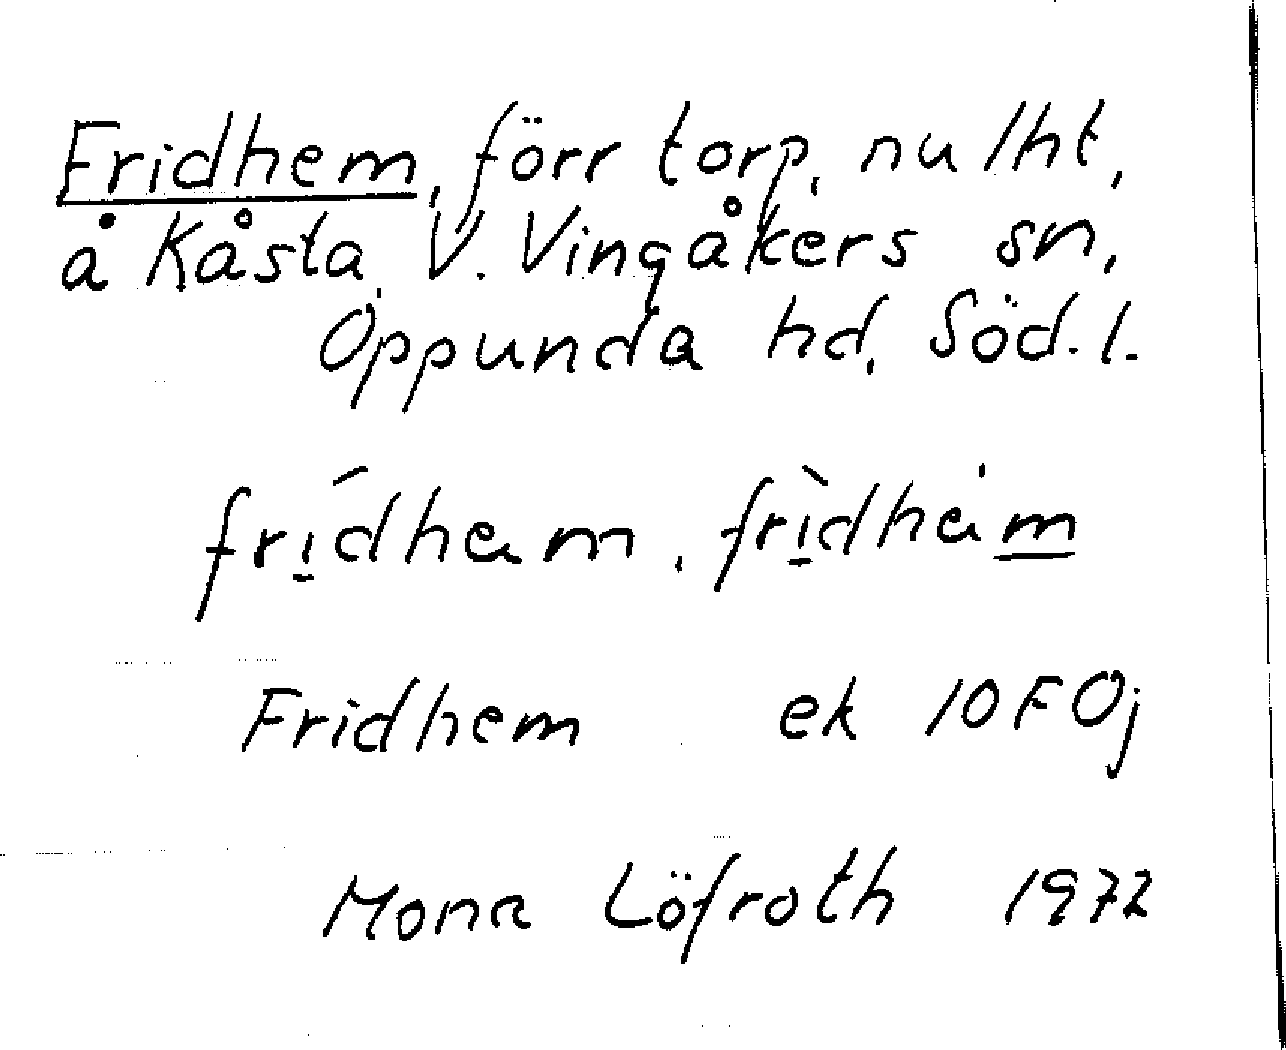 Fridhem, förr torp, nu lht,
å Kåsta, V. Vingåkers sn,
Oppunda hd, Söd. l.
frí̱dhem, frì̱dhem̱
Fridhem ek 10F0j
Mona Löfroth 1972